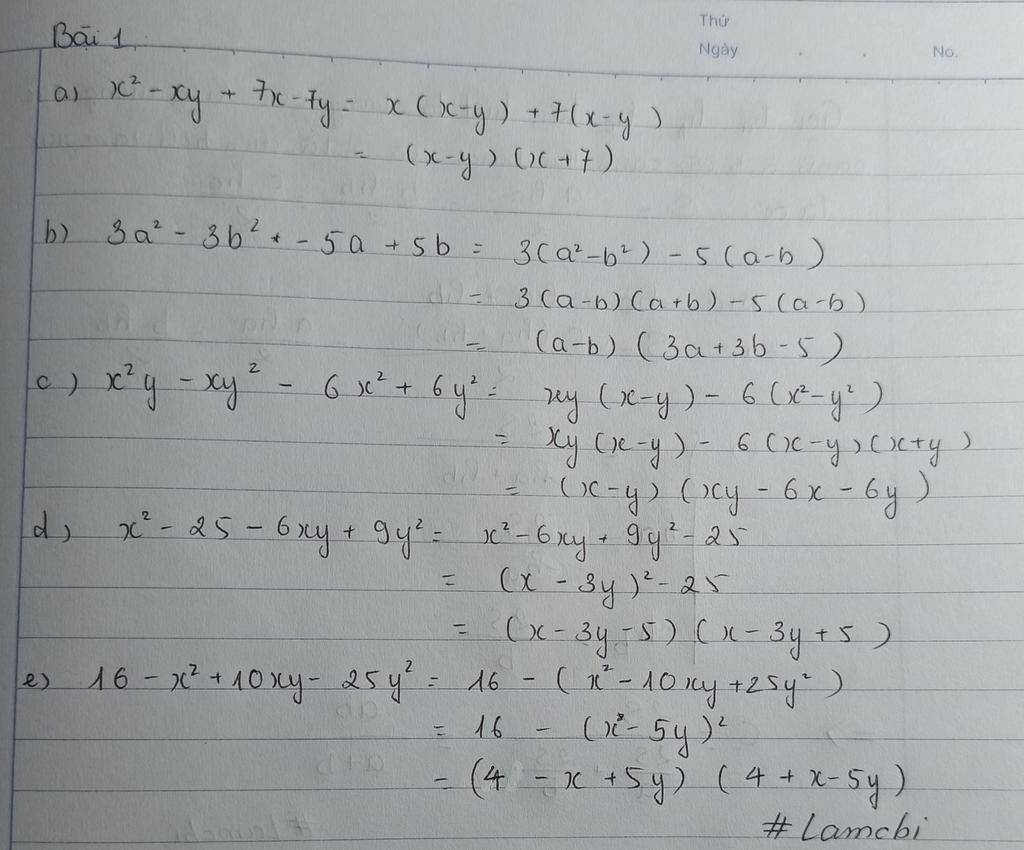 Thứ
Ngày . . No.
Bài 1.
a) x² - xy + 7x - 7y = x(x-y) + 7(x-y)
= (x-y)(x+7)
b) 3a² - 3b² + - 5a + 5b = 3(a²-b²) - 5(a-b)
= 3(a-b)(a+b) - 5(a-b)
= (a-b)(3a+3b-5)
c) x²y - xy² - 6x² + 6y² = xy(x-y) - 6(x²-y²)
= xy(x-y) - 6(x-y)(x+y)
= (x-y)(xy - 6x - 6y)
d) x² - 25 - 6xy + 9y² = x² - 6xy + 9y² - 25
= (x - 3y)² - 25
= (x - 3y - 5)(x - 3y + 5)
e) 16 - x² + 10xy - 25y² = 16 - (x² - 10xy + 25y²)
= 16 - (x - 5y)²
= (4 - x + 5y)(4 + x - 5y)
# Lamchi